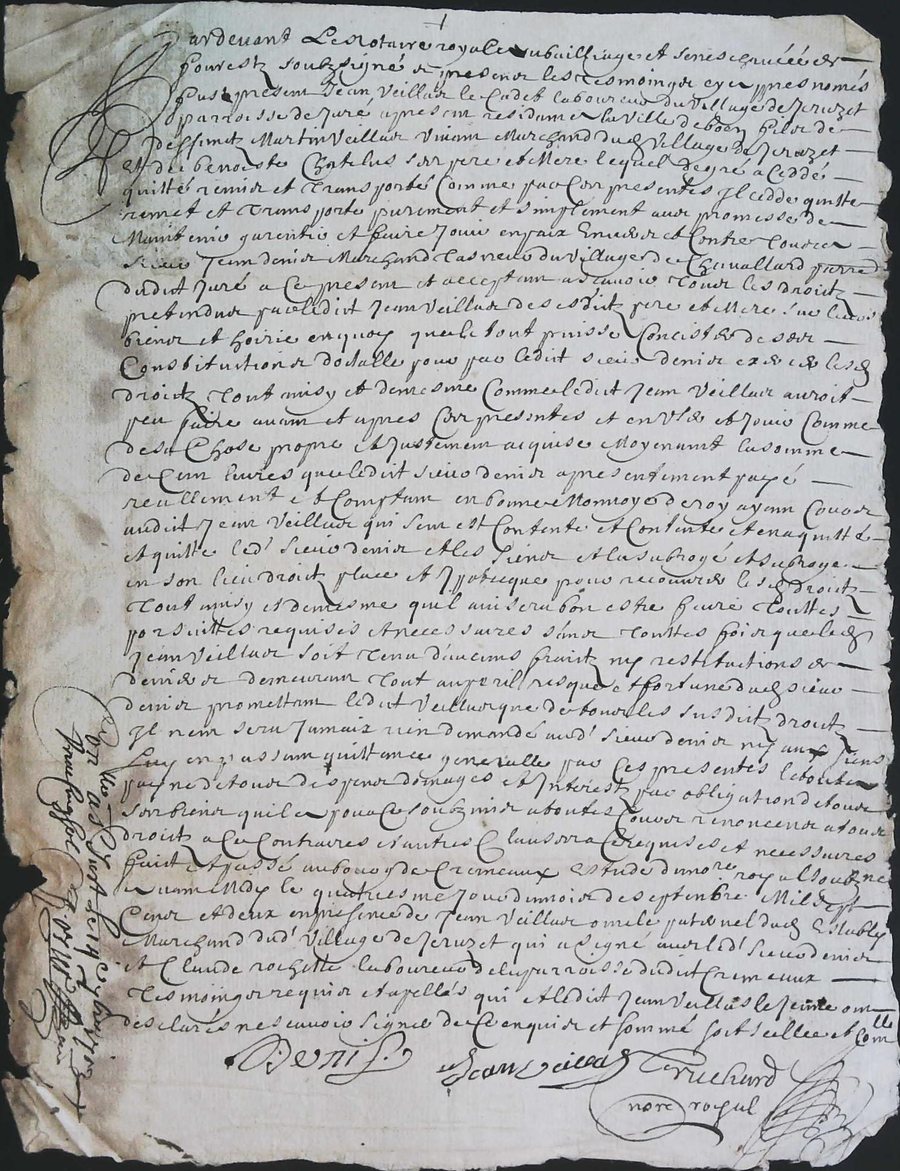 Pardevant Le Notaire royal au bailliage et senechaucée de
fourestz soubzsigné et presence les tesmoingz cy appres només
fust present Jean Veillas le Cadet laboureur du Village de Jeruzet
parroisse de Juré a present residant en la Ville de boen filz de
deffunct Martin Veillas Vivant Marchand dud Village de Jeruzet
Et de benoiste Chatelus ses pere et Mere lequel de gré a Ceddé
quitté remis et transporté Comme par Ces presentes Il cedde quitte
remet et transporte purement et simplement avec promesse de
Maintenir garentir et faire Jouir en paix Envers et Contre tous a
sieur Jean denis Marchand du Village de Chevallard
dudit Juré a Ce present et acceptant a scavoir tous les droitz
pretendus par ledit Jean Veillas desesditz pere et Mere sur leurs
biens et hoirie en quoy que le tout puisse Concister de ses
Constitutions doctalle pour par ledit sieur denis des lesd
droitz tout ainsy et de mesme Comme ledit Jean Veillas auroit
peu faire avant et apres Ces presentes et en User et Jouir Comme
de sa Chose propre et Justement acquise Moyenant la somme
de Cent livres que ledit sieur denis a presentement payé
reellement et Comptant en bonne Monnoye de roy ayant Cours
audit Jean Veillas qui s'en est Contenté et Contente et en a quitté
et quitte led' sieur denis et les siens et la subrogé et subroge
en son lieu droit place et Ipotecque pour recouvrer lesd droitz
tout ainsy et de mesme quil avisera bon estre faire touttes
porsuittes requises et necessaires sans touttes fois que led
Jean Veillas soit tenu d'aucuns fraitz ny restitutions de
deniers demeurant tout au peril risque et fortune dud sieur
denis promettant ledit Veillas que de tous les susdit droitz
Il n'en sera Jamais rien demandé aud' sieur denis ny aux siens
Luy en passant quittance generalle par Ces presentes
payne de tous despens domages et Interest par obligation de tous
ses biens qu'il a pour Ce soubzmis a toutes Cours renonceant a tous
droitz a Ce Contraires et autres Clauses a Ce requises et necessaires
fait et passé au bourg de Cremeaux Estude du nore royal soubzne
avant Midy le quatriesme Jour du mois de septembre Mil sept
Cens et deux en presence de Jean Veillas oncle paternel dud Establi
Marchand dud' Village de Jeruzet qui a signé avec led' sieur denis
et Claude rochette laboureur de la parroisse dudit Cremeaux
tesmoingz requis et apellés qui et ledit Jean Veillas le Jeune ont
desclarés ne scavoir signer de Ce enquis et sommé soit scellé et Con
lle
Denis
Jean Veillas
Truchard
nore royal